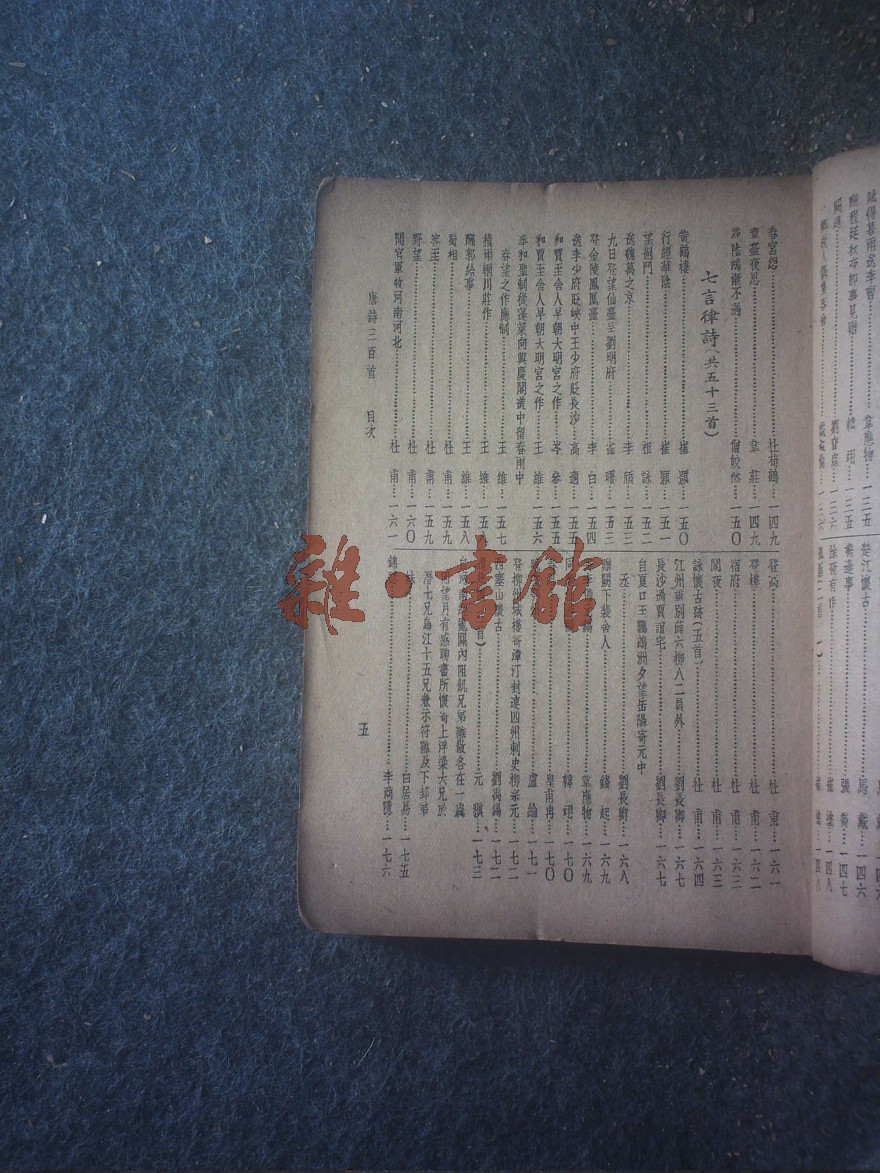 春宮怨……杜荀鶴…一四九
章臺夜思……韋莊…一四九
尋陸鴻漸不遇……僧皎然…一五〇
七言律詩(共五十三首)
黃鶴樓……崔顥…一五〇
行經華陰……崔顥…一五一
望薊門……祖詠…一五二
送魏萬之京……李頎…一五三
九日登望仙臺呈劉明府……崔曙…一五三
登金陵鳳凰臺……李白…一五四
送李少府貶峽中王少府貶長沙…高適…一五五
和賈至舍人早朝大明宮之作…岑參…一五五
和賈至舍人早朝大明宮之作…王維…一五六
奉和聖制從蓬萊向興慶閣道中留春雨中
春望之作應制……王維…一五七
積雨輞川莊作……王維…一五八
酬郭給事……王維…一五八
蜀相……杜甫…一五九
客至……杜甫…一五九
野望……杜甫…一六〇
聞官軍收河南河北……杜甫…一六一
登高……杜甫…一六一
登樓……杜甫…一六二
宿府……杜甫…一六三
閣夜……杜甫…一六三
詠懷古跡(五首)……杜甫…一六四
江州重別薛六柳八二員外……劉長卿…一六七
長沙過賈誼宅……劉長卿…一六七
自夏口至鸚鵡洲夕望岳陽寄元中
丞……劉長卿…一六八
贈闕下裴舍人……錢起…一六九
韋應物…一六九
韓翃…一七〇
皇甫冉…一七〇
盧綸…一七一
登柳州城樓寄漳汀封連四州刺史柳宗元…一七二
西塞山懷古……劉禹錫…一七二
首)……元稹…一七三
河南經亂關內阻飢兄弟離散各在一處
望月有感聊書所懷寄上浮梁大兄於
潛七兄烏江十五兄兼示符離及下邽弟
妹……白居易…一七五
錦……李商隱…一七六
唐詩三百首 目次
五
雜·書館